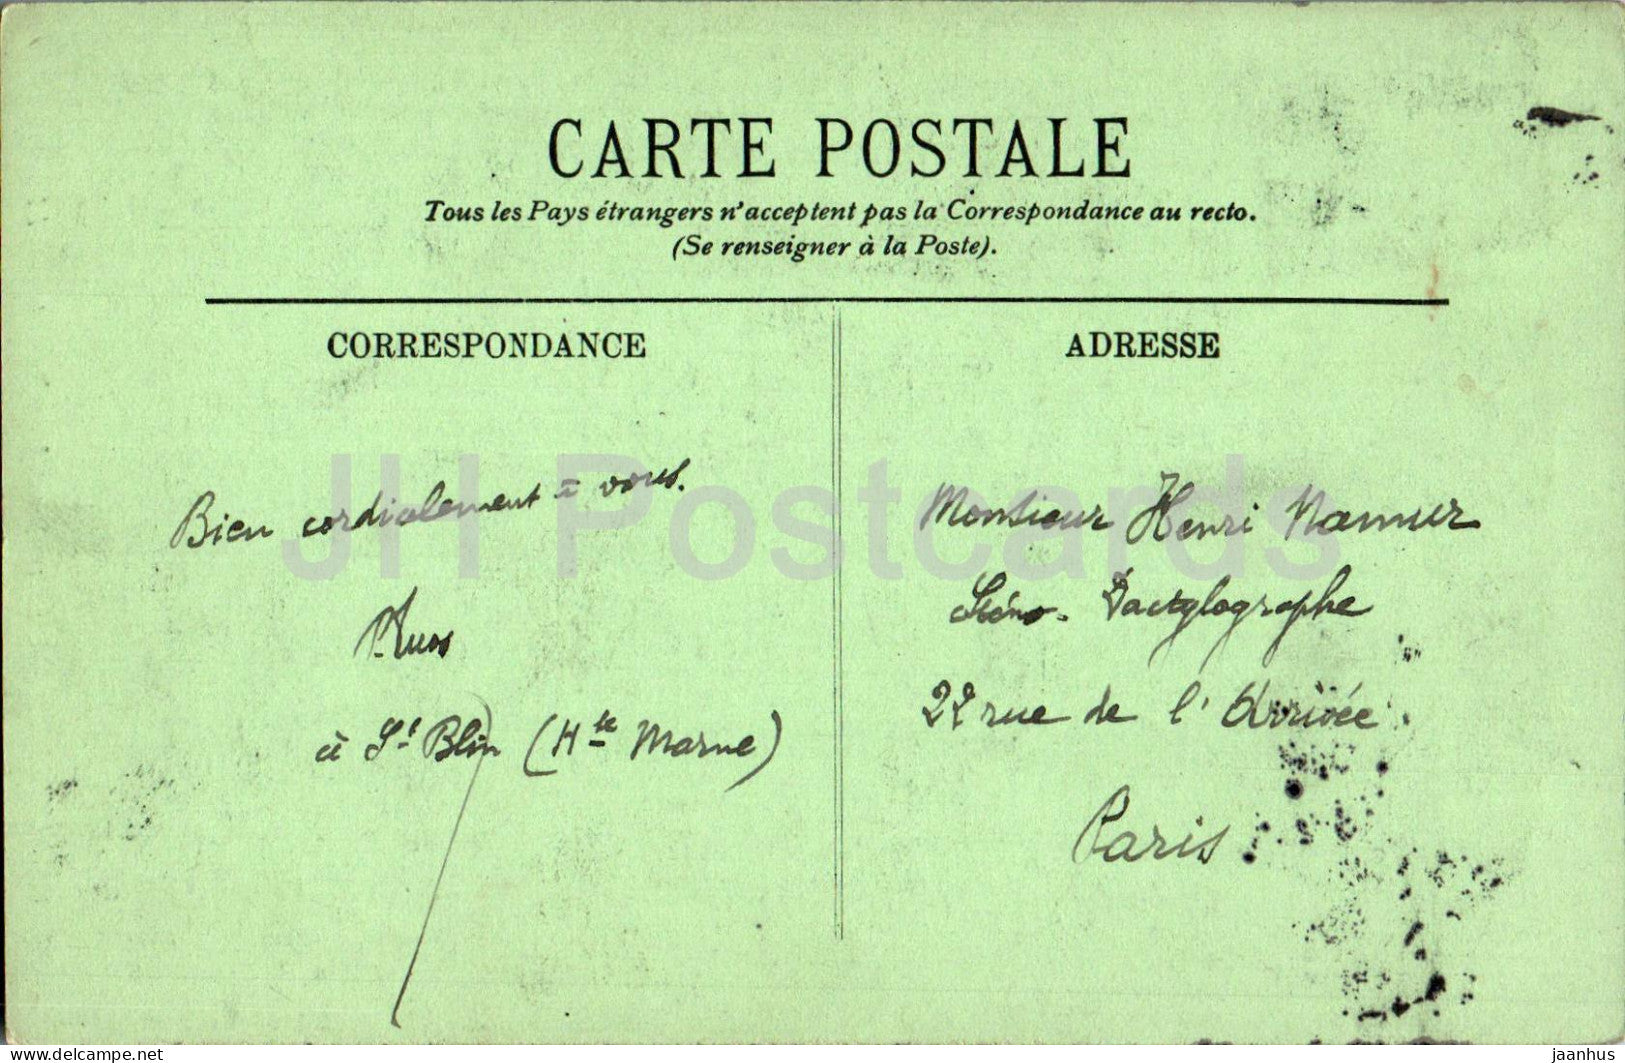 CARTE POSTALE
Tous les Pays étrangers n'acceptent pas la Correspondance au recto.
(Se renseigner à la Poste).
CORRESPONDANCE
Bien cordialement à vous.
à St Blin (Hte Marne)
ADRESSE
Monsieur Henri Namur
Sténo-Dactylographe
22 rue de l'Arrivée.
Paris
JH Postcards
www.delcampe.net
jaanhus